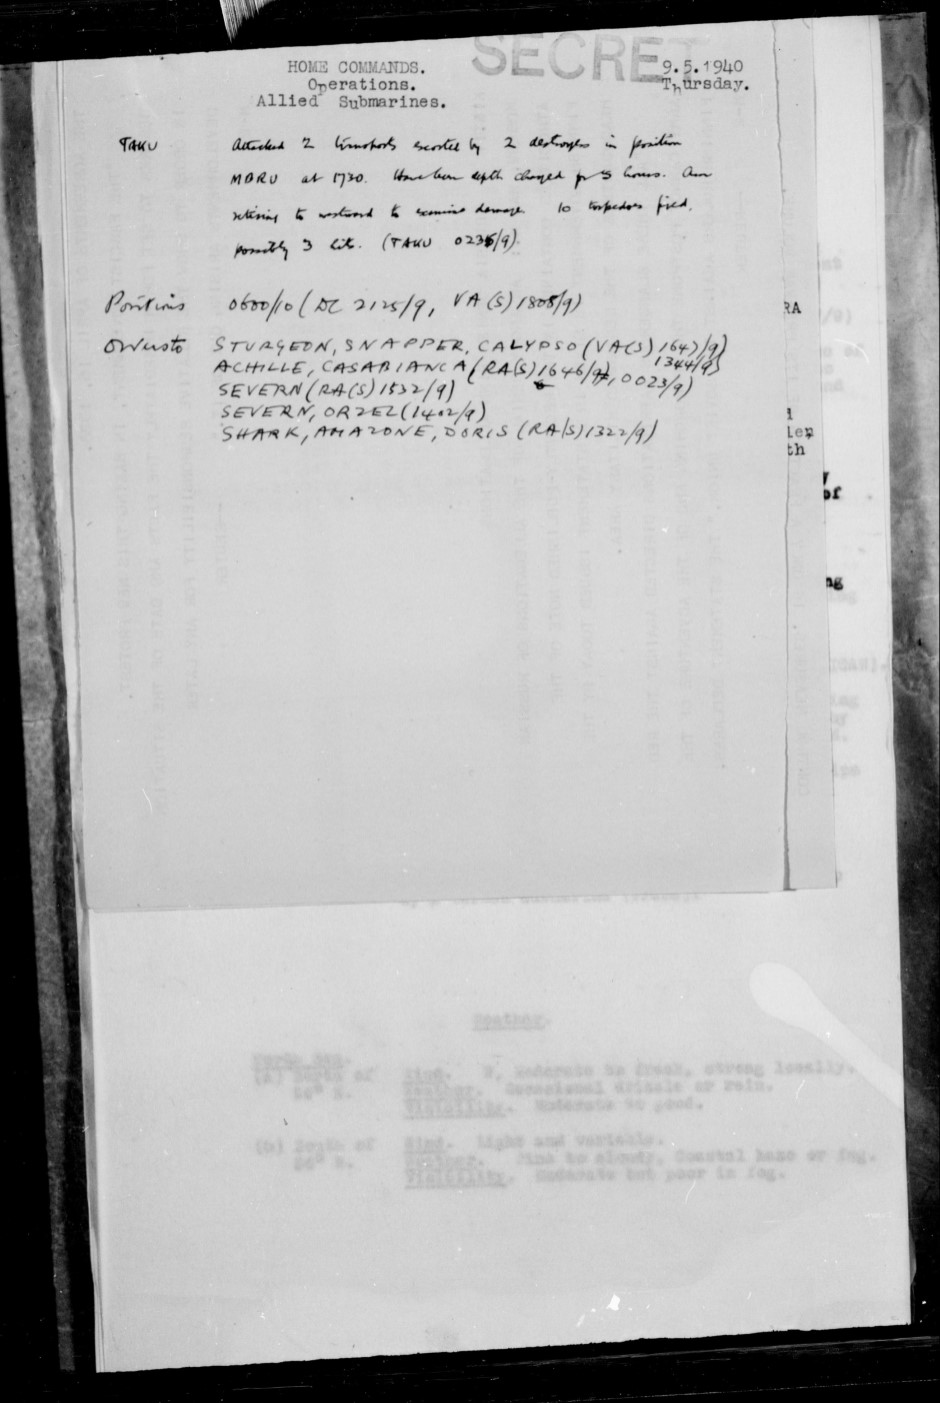 SECRET
HOME COMMANDS.
Operations.
Allied Submarines.
9.5.1940
Thursday.
TAKU Attacked 2 transports escorted by 2 destroyers in position
MBRU at 1730. Have been depth charged for 5 hours. Am
retiring to westward to examine damage. 10 torpedoes fired,
possibly 3 hits. (TAKU 0235/9).
Positions 0600/10 (DC 2125/9, VA(S) 1805/9)
Orders to STURGEON, SNAPPER, CALYPSO (VA(S) 1647/9)
1344/9)
ACHILLE, CASABIANCA (RA(S) 1646/9, 0023/9)
SEVERN (RA(S) 1532/9)
SEVERN, ORZEL (1402/9)
SHARK, AMAZONE, DORIS (RA(S) 1322/9)
RA
th
of
ng
Weather.
North Sea.
(a) North of
56° N.
Wind. W, Moderate to fresh, strong locally.
Weather. Occasional drizzle or rain.
Visibility. Moderate to good.
(b) South of
56° N.
Wind. Light and variable.
Weather. Fine to cloudy, Coastal haze or fog.
Visibility. Moderate but poor in fog.